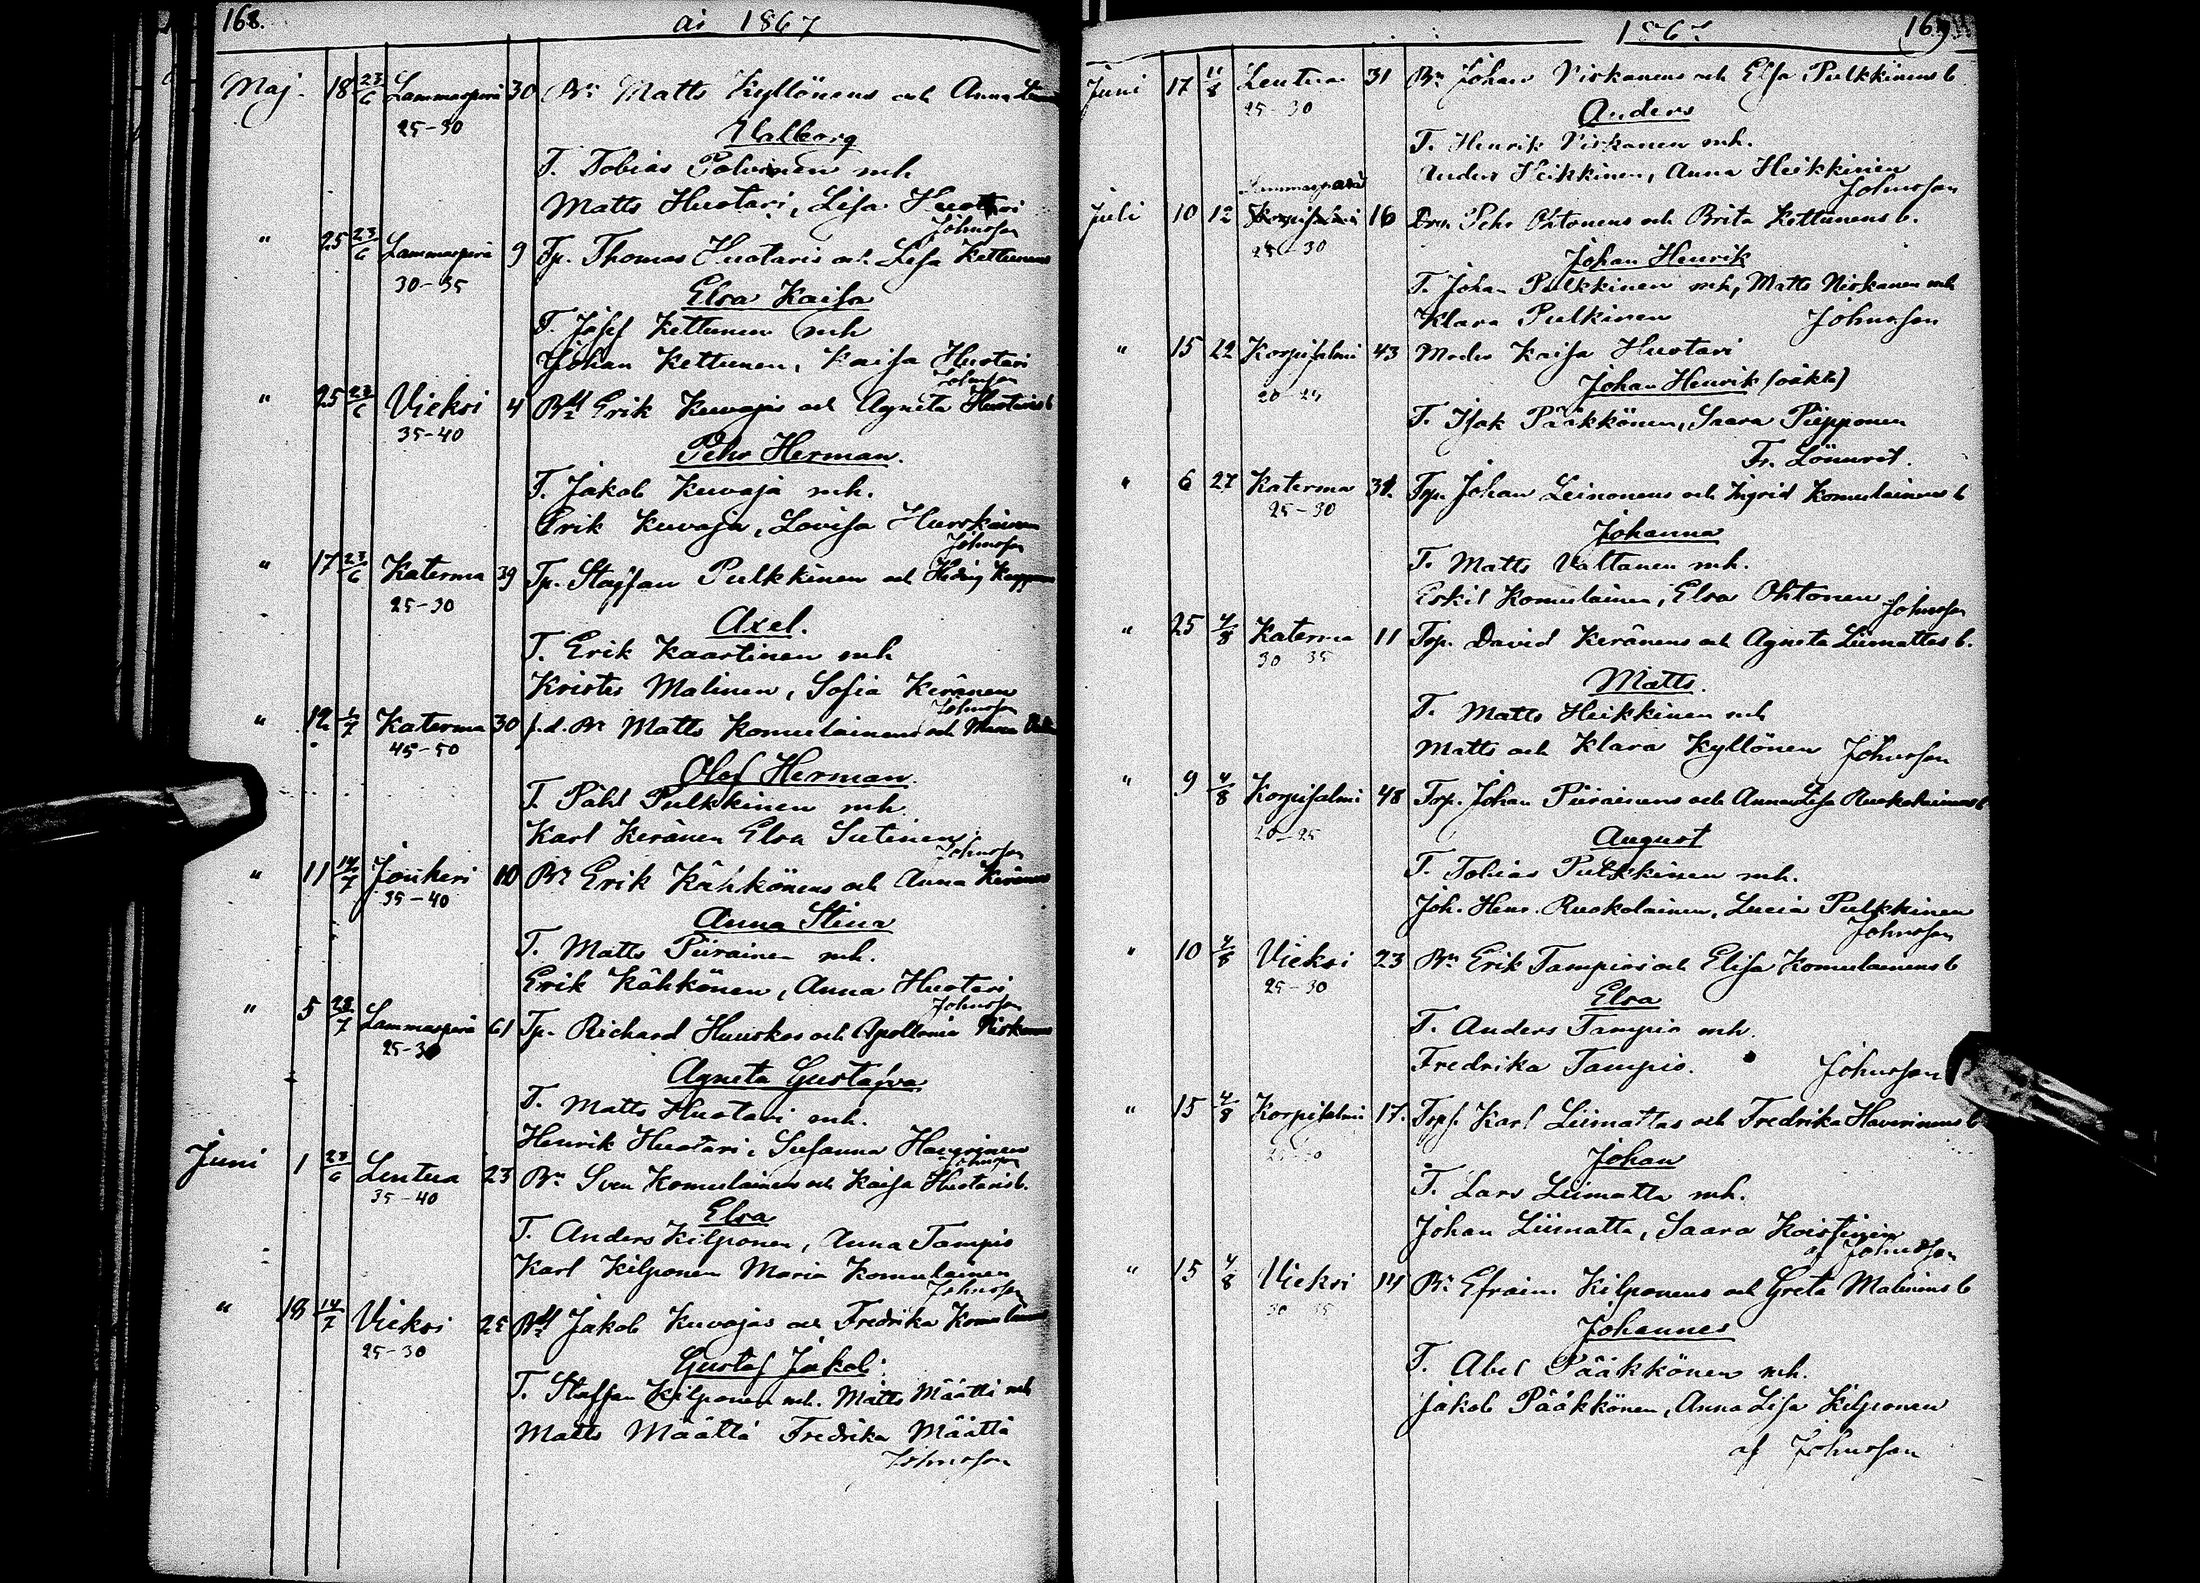 168.
år 1867
Maj. 18 23/6 Lammasperä 30 Bn Matts Kyllönens och Anna
25-30
Valborg
T. Tobias Polvinen mh
Matts Huotari, Lisa Huotari
Johnsson
" 25 23/6 Lammasperä 9 Tp. Thomas Huotaris och Lisa Kettunens
30-35
Elsa Kaisa
T. Josef Kettunen mh
Johan Kettunen, Kaisa Huotari
Johnsson
" 25 23/6 Vieksi 4 Erik Kuvajas och Agneta Huotaris b
35-40
Pehr Herman.
T. Jakob Kuvaja mh.
Erik Kuvaja, Lovisa Hurskainen
Johnsson
" 17 23/6 Katerma 39 Tp. Staffan Pulkkinen och Hedvig
25-30
Axel.
T. Erik Kaartinen mh
Krister Malinen, Sofia Keränen
Johnsson
" 12 1/7 Katerma 30 f.d. Bn Matts Komulainens och
45-50
Olof Herman.
T. Påhl Pulkkinen mh.
Karl Keränen Elsa Sutinen
Johnsson
" 11 14/7 Jonkeri 10 Bn Erik Kähkönens och Anna Keränens
35-40
Anna Stina
T. Matts Piirainen mh.
Erik Kähkönen, Anna Huotari
Johnsson
" 5 28/7 Lammasperä 61 Tp. Richard Huuskos och Apollonia Niskanens
25-30
Agneta Gustafva
T. Matts Huotari mh.
Henrik Huotari, Susanna
Johnsson
Juni 1 23/6 Lentua 23 Bn Sven Komulainens och Kaisa Huotaris b.
35-40
Elsa
T. Anders Kilponen, Anna Tampio
Karl Kilponen Maria Komulainen
Johnsson
" 18 14/7 Vieksi 25 Jakob Kuvajas och Fredrika
25-30
Gustaf Jakob
T. Staffan Kilponen mh. Matts Määttä mh
Matts Määttä Fredrika Määttä
Johnsson
1867
169
Juni 17 11/8 Lentua 31 Bn Johan Niskanens och Elsa Pulkkinens b
25-30
Anders
T. Henrik Niskanen mh.
Anders Heikkinen, Anna Heikkinen
Johnsson
Lammasperä
Juli 10 12 Korpisalmi 16 Pehr Ohtonens och Brita Kettunens b.
25-30
Johan Henrik
T. Johan Pulkkinen mh, Matts Niskanen mh
Klara Pulkinen Johnsson
" 15 22 Korpisalmi 43 Moder Kaisa Huotari
20-25
Johan Henrik (oäkta)
T. Isak Pääkkönen, Saara Piipponen
Fr. Lönnrot.
" 6 27 Katerma 31. Tp. Johan Leinonens och Ingrid Komulainens b
25-30
Johanna
T. Matts Valtanen mh.
Eskil Komulainen, Elsa Ohtonen
Johnsson
" 25 4/8 Katerma 11 Tp. David Keränens och Agneta Liimattas b.
30 35
Matts.
T. Matts Heikkinen mh
Matts och Klara Kyllönen Johnsson
" 9 4/8 Korpisalmi 48 Tp. Johan Piirainens och Anna Lisa Ruokolainens b
20-25
August
T. Tobias Pulkkinen mh.
Joh. Henr. Ruokolainen, Lucia Pulkkinen
Johnsson
" 10 4/8 Vieksi 23 Bn Erik Tampios och Elisa Komulainens b
25-30
Elsa
T. Anders Tampio mh.
Fredrika Tampio. Johnsson
" 15 4/8 Korpisalmi 17. Karl Liimattas och Fredrika Haverinens b
Johan
T. Lars Liimatta mh.
Johan Liimatta, Saara Koistinen
af Johnsson
" 15 4/8 Vieksi 14 Bn Efraim Kilponens och Greta Malinens b
30 35
Johannes
T. Abel Pääkkönen mh.
Jakob Pääkkönen, Anna Lisa Kilponen
af Johnsson